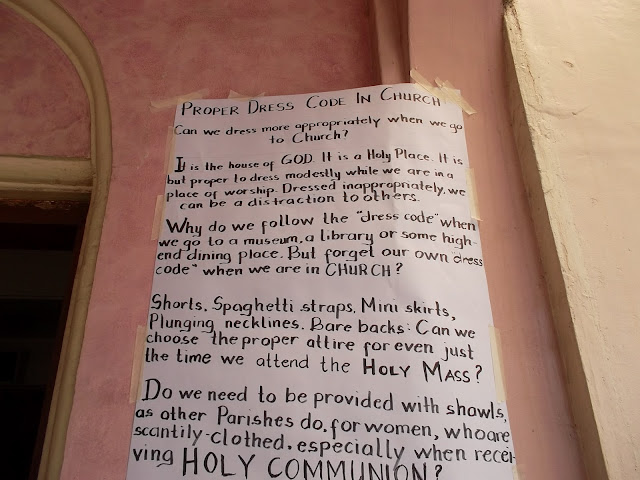 PROPER DRESS CODE IN CHURCH
Can we dress more appropriately when we go
to Church?
It is the house of GOD. It is a Holy Place. It is
but proper to dress modestly while we are in a
place of worship. Dressed inappropriately, we
can be a distraction to others.
Why do we follow the "dress code" when
we go to a museum, a library or some high-
end dining place. But forget our own "dress
code" when we are in CHURCH?
Shorts, Spaghetti straps, Mini skirts,
Plunging necklines. Bare backs: Can we
choose the proper attire for even just
the time we attend the HOLY MASS?
Do we need to be provided with shawls,
as other Parishes do, for women, who are
scantily-clothed, especially when recei-
ving HOLY COMMUNION?